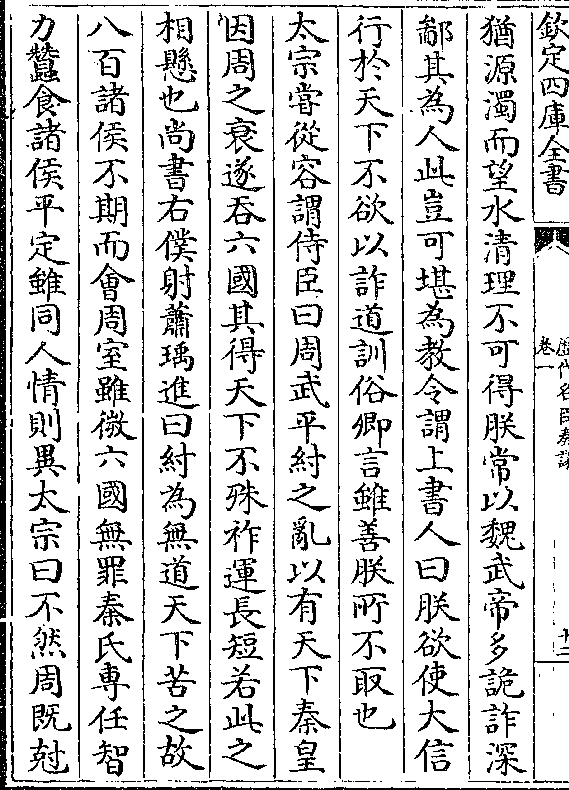 欽定四庫全書
卷一
猶源濁而望水清理不可得朕常以魏武帝多詭詐深
鄙其為人此豈可堪為教令謂上書人曰朕欲使大信
行於天下不欲以詐道訓俗卿言雖善朕所不取也
太宗嘗從容謂侍臣曰周武平紂之亂以有天下秦皇
因周之衰遂吞六國其得天下不殊祚運長短若此之
相懸也尚書右僕射蕭瑀進曰紂為無道天下苦之故
八百諸侯不期而會周室雖微六國無罪秦氏專任智
力蠶食諸侯平定雖同人情則異太宗曰不然周既尅